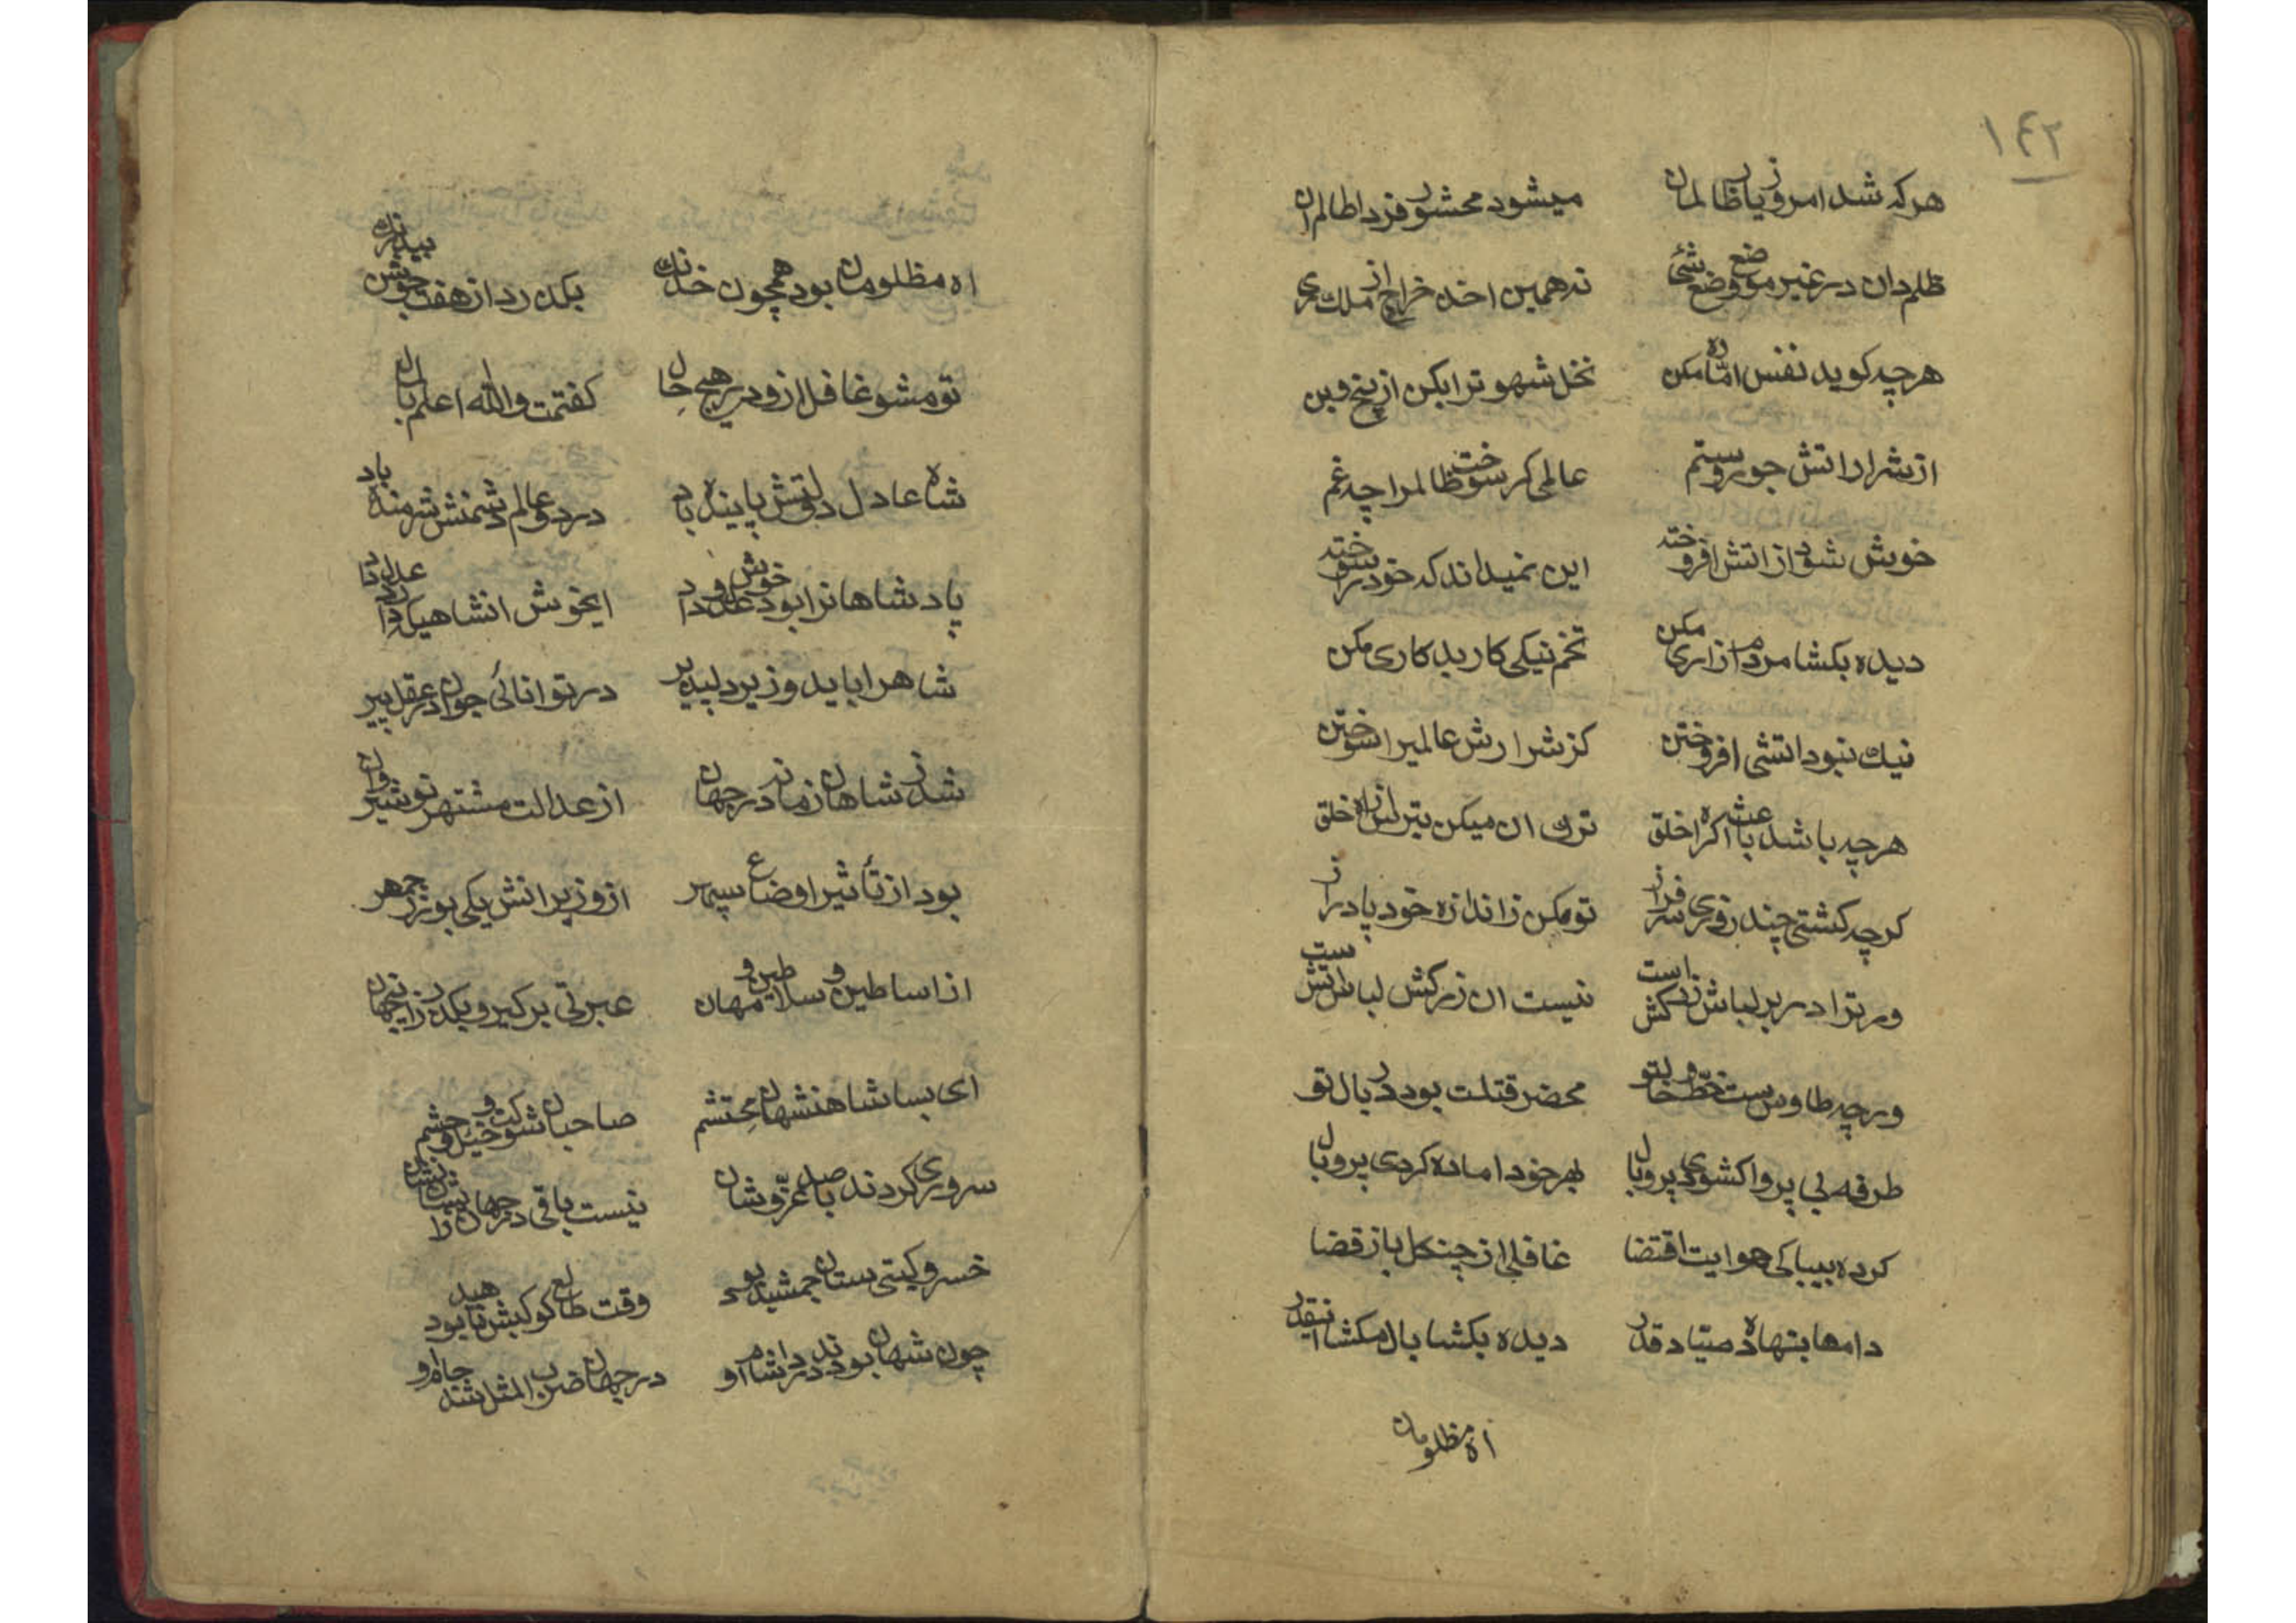 ۱۴۲
هرکه شد امروز یار ظالمان میشود محشور فردا ظالم ان
ظلم دان در غیر موضع وضع شئ نه همین اخذ خراج از ملک ری
هرچه کوید نفس اماره مکن نخل شهوترا بکن از بیخ و بن
از شرار اتش جور و ستم عالمی کر سوخت ظالمرا چه غم
خویش شود از اتش افروخته این نمیداند که خود را سوخته
دیده بکشا مردم ازاری مکن تخم نیکی کار بد کاری مکن
نیک نبود اتشی افروختن کز شرارش عالمیرا سوختن
هرچه باشد باعث اکراه خلق ترک ان میکن بترس از اه خلق
کرچه کشتی چند روزی سرفراز تو مکن ز اندازه خود پا دراز
ور ترا در بر لباش زرکش است نیست ان زرکش لباس اتش ست
ورچه طاوس ست خط و خال تو محضر قتلت بود در بال تو
طرفه بی پروا کشودی پر و بال بهر خود اماده کردی پر و بال
کرده بیباکی هوایت اقتضا غافلی از چنکل باز قضا
دامها بنهاده صیاد قدر دیده بکشا بال مکشا انیقدر
اه مظلومان
اه مظلومان بود همچون خدنک بکذرد از هفت جوشن بیدرنک
تو مشو غافل ازو در هیچ حال کفتمت والله اعلم بال
شاه عادل دولتش پاینده باد در دو عالم دشمنش شرمنده باد
پادشاهانرا بود خوش عدل و داد ایخوش انشاهیکه دارد عدل داد
شاهرا باید وزیر دلپذیر در توانائی جوان در عقل پیر
شد ز شاهان زمانه در جهان از عدالت مشتهر نوشیروان
بود از تأثیر اوضاع سپهر از وزیرانش یکی بوزرجمهر
از اساطین و سلاطین و مهان عبرتی برکیر و بکذر زاینجهان
ای بسا شاهنشهان محتشم صاحبان شوکت و خیل و حشم
سروری کردند با صد عز و شان نیست باقی در جهان زایشان نشان
خسرو کیتی ستان جمشید بود وقت طالع کوکبش ناهید بود
چون شهان بودند در انشام او در جهان ضرب المثل شد جاه او